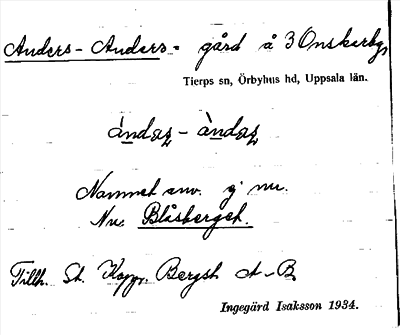 Anders-Anders- gård å 3 Onskarby,
Tierps sn, Örbyhus hd, Uppsala län.
àndaʂ - àndaʂ
Namnet anv. ej nu.
Nu. Blåsberget.
Tillh. St. Kopp. Bergsl. A-B.
Ingegärd Isaksson 1934.